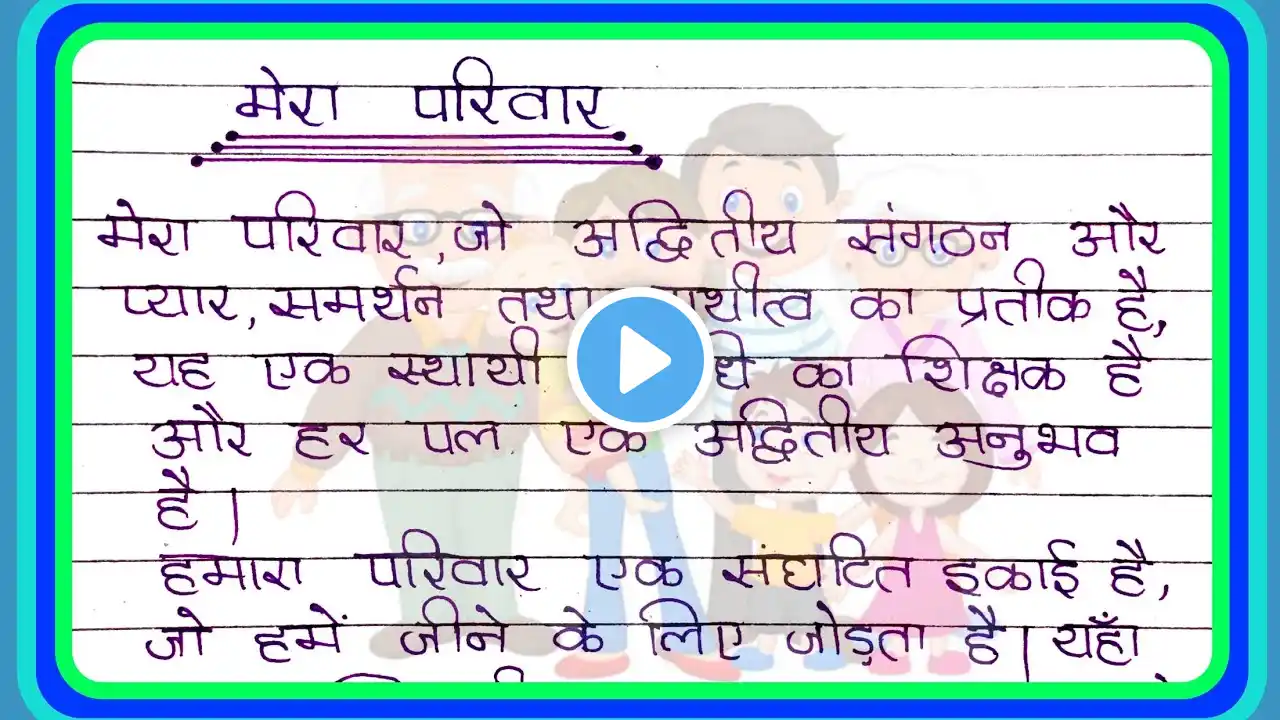 मेरा परिवार
मेरा परिवार, जो अद्वितीय संगठन और
प्यार, समर्थन तथा का प्रतीक है,
यह एक स्थायी का शिक्षक है
और हर पल एक अद्वितीय अनुभव
है।
हमारा परिवार एक संघटित इकाई है,
जो हमें जीने के लिए जोड़ता है। यहाँ